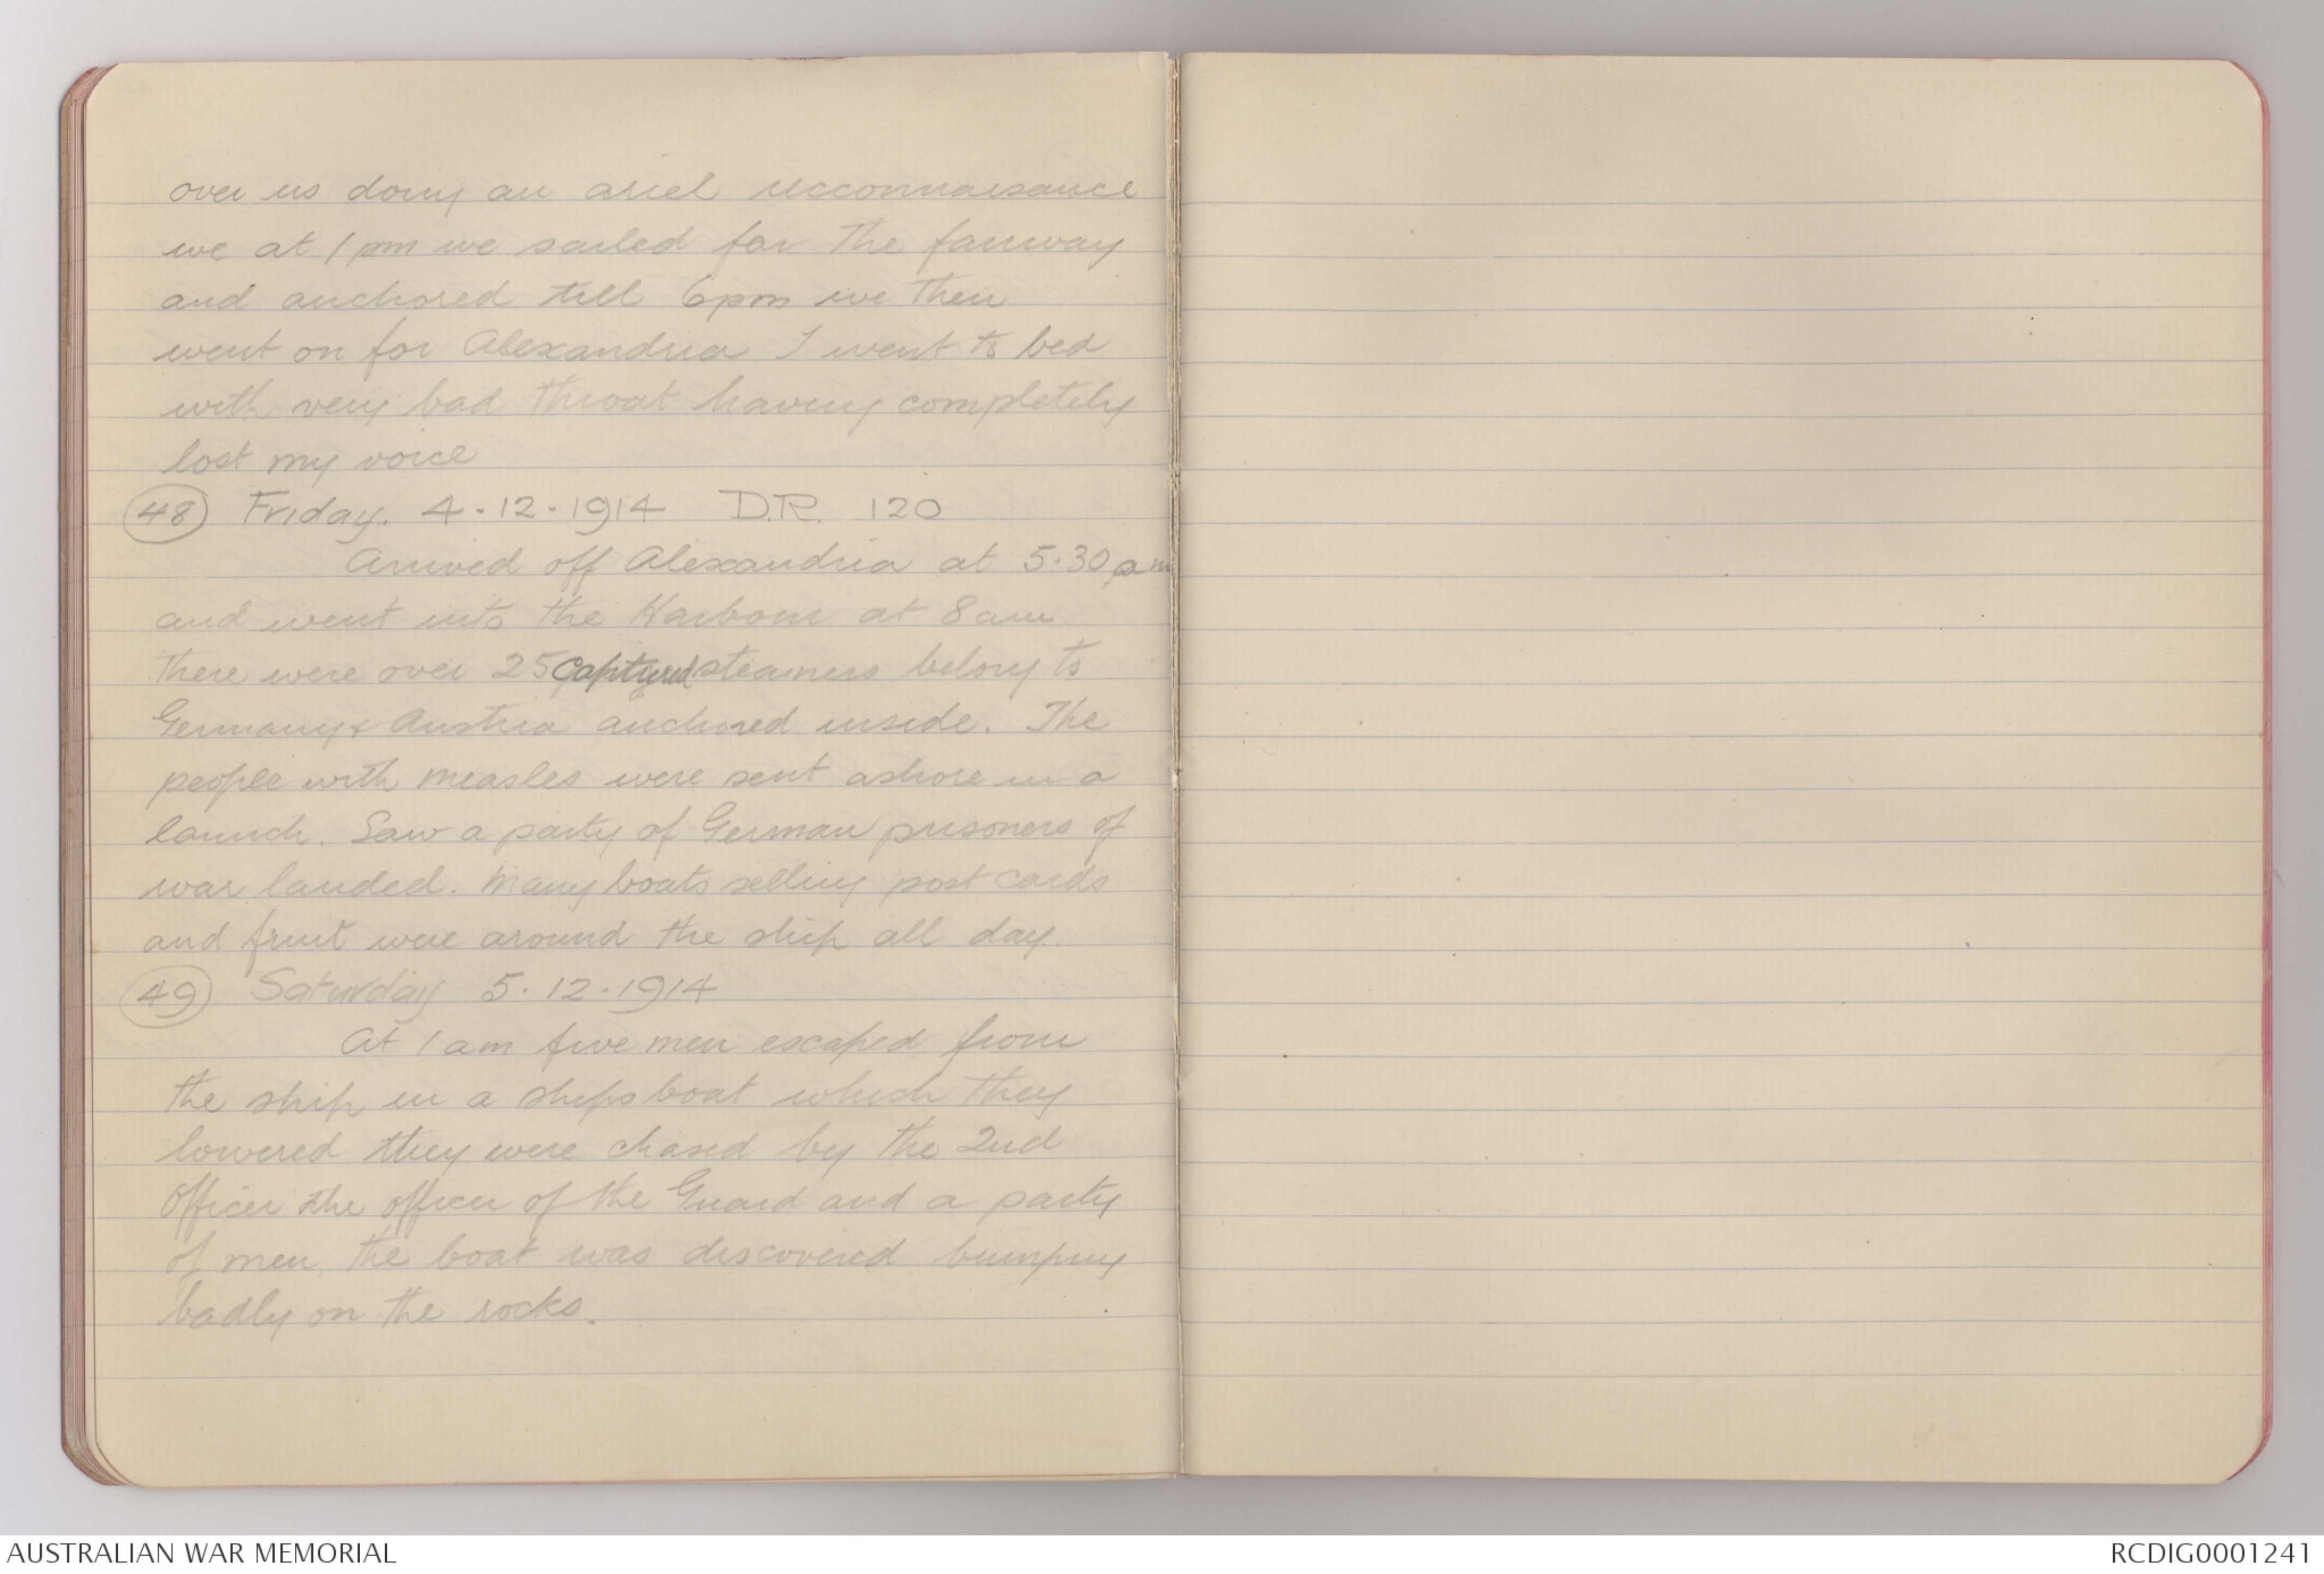 over us doing an ariel recconnaisance
we at 1 pm we sailed for the fairway
and anchored till 6pm we then
went on for Alexandria I went to bed
with very bad throat having completely
lost my voice
48 Friday. 4.12.1914 D.R. 120
Arrived off Alexandria at 5.30 am
and went into the Harbour at 8 am.
There were over 25 captured steamers belong to
Germany & Austria anchored inside. The
people with measles were sent ashore in a
launch. Saw a party of German prisoners of
war landed. Many boats selling post cards
and fruit were around the ship all day.
49 Saturday 5.12.1914
At 1 am five men escaped from
the ship in a ships boat which they
lowered they were chased by the 2nd
Officer the officer of the Guard and a party
of men, the boat was discovered bumping
badly on the rocks.
AUSTRALIAN WAR MEMORIAL
RCDIG0001241